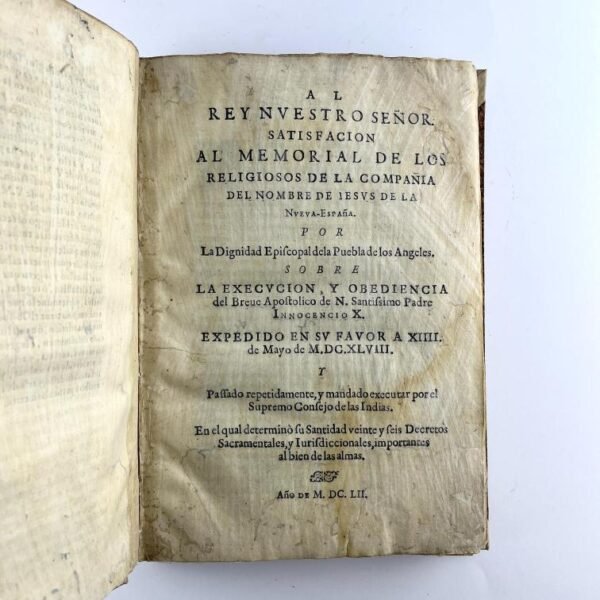 AL
REY NVESTRO SEÑOR.
SATISFACION
AL MEMORIAL DE LOS
RELIGIOSOS DE LA COMPAÑIA
DEL NOMBRE DE IESVS DE LA
NVEVA-ESPAÑA.
POR
La Dignidad Epiſcopal dela Puebla de los Angeles.
SOBRE
LA EXECVCION, Y OBEDIENCIA
del Breue Apoſtolico de N. Santiſsimo Padre
INNOCENCIO X.
EXPEDIDO EN SV FAVOR A XIIII.
de Mayo de M.DC.XLVIII.
Y
Paſſado repetidamente, y mandado executar por el
Supremo Conſejo de las Indias.
En el qual determinò ſu Santidad veinte y ſeis Decretos
Sacramentales, y Iuriſdiccionales, importantes
al bien de las almas.
Año DE M. DC. LII.